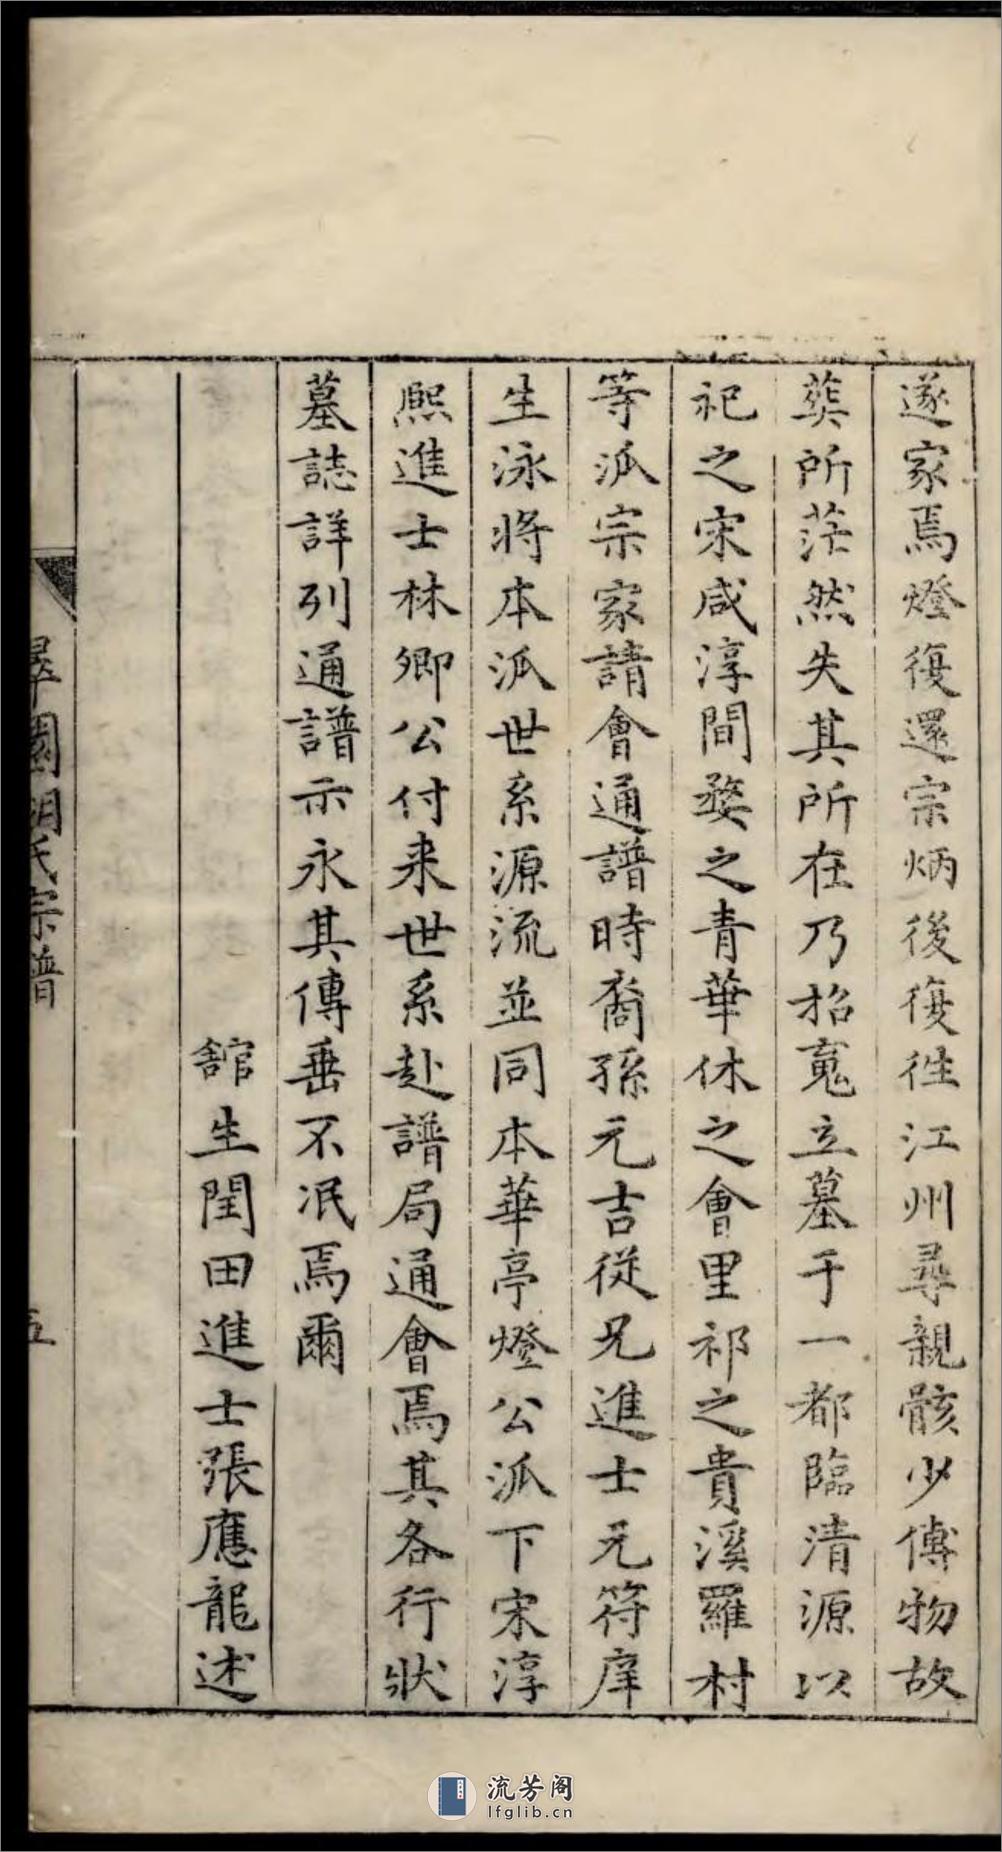 遂家焉燈復還宗炳後復徃江州尋親骸少傅物故
葬所茫然失其所在乃招䰟立墓于一都臨清源以
祀之宋咸淳間婺之青華休之會里祁之貴溪羅村
等派宗家請會通譜時裔孫元吉従兄進士元符庠
生泳將本派世系源流並同本華亭燈公派下宋淳
熈進士林卿公付来世系赴譜局通會焉其各行狀
墓誌詳列通譜示永其傳垂不泯焉爾
舘生閏田進士張應龍述
園胡氏宗譜
五
流芳阁
lfglib.cn